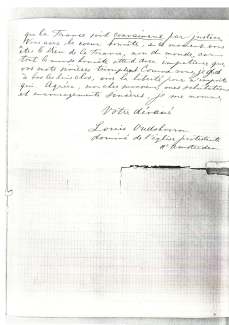 que la France soit convaincue par justice.
Vous avez le cœur honnête, si le
êtes le Dieu de la France, non du monde, car
tout le monde honnête attend avec impatience que
vos nobles triomphent comme vous, je
à bas les huis clos, vive la liberté pour n'importe
qui. Agréez, mon cher mes salutations
et encouragements sincères. Je me nomme,
Votre dévoué
Louis Oudshoorn
dominé de l'église protestante
d'Amsterdam